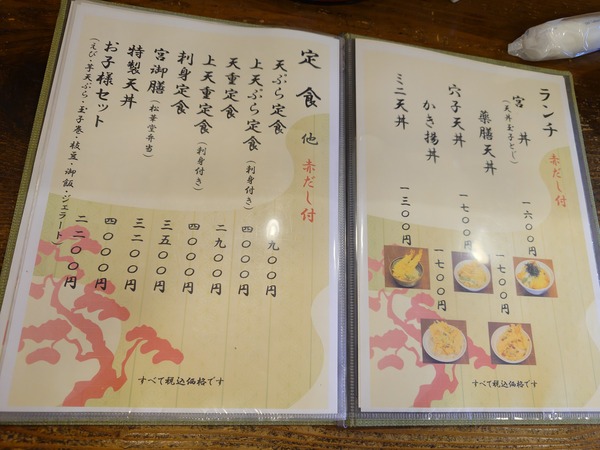 ランチ 赤だし付
宮丼 一六〇〇円
(天丼玉子とじ)
薬膳天丼 一七〇〇円
穴子天丼 一七〇〇円
かき揚丼 一七〇〇円
ミニ天丼 一三〇〇円
すべて税込価格です
定食 他 赤だし付
天ぷら定食 九〇〇円
上天ぷら定食(刺身付き) 四〇〇〇円
天重定食 二九〇〇円
上天重定食(刺身付き) 四〇〇〇円
刺身定食 三五〇〇円
宮御膳(松華堂弁当) 三二〇〇円
特製天丼 四〇〇〇円
お子様セット 二二〇〇円
(えび・芋天ぷら・玉子巻・枝豆・御飯・ジェラート)
すべて税込価格です